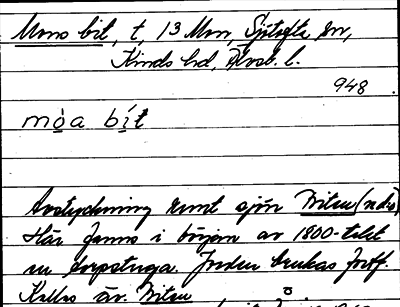 Mons bit, t, 13 Mon, Sjötofta sn,
Kinds hd, Älvsb. l.
948.
mòa bít
Avstyckning runt sjön Bitsu (ndś)
Här fanns i början av 1800-talet
en torpstuga. Jorden brukas fortf.
Kallas äv. Bitsu